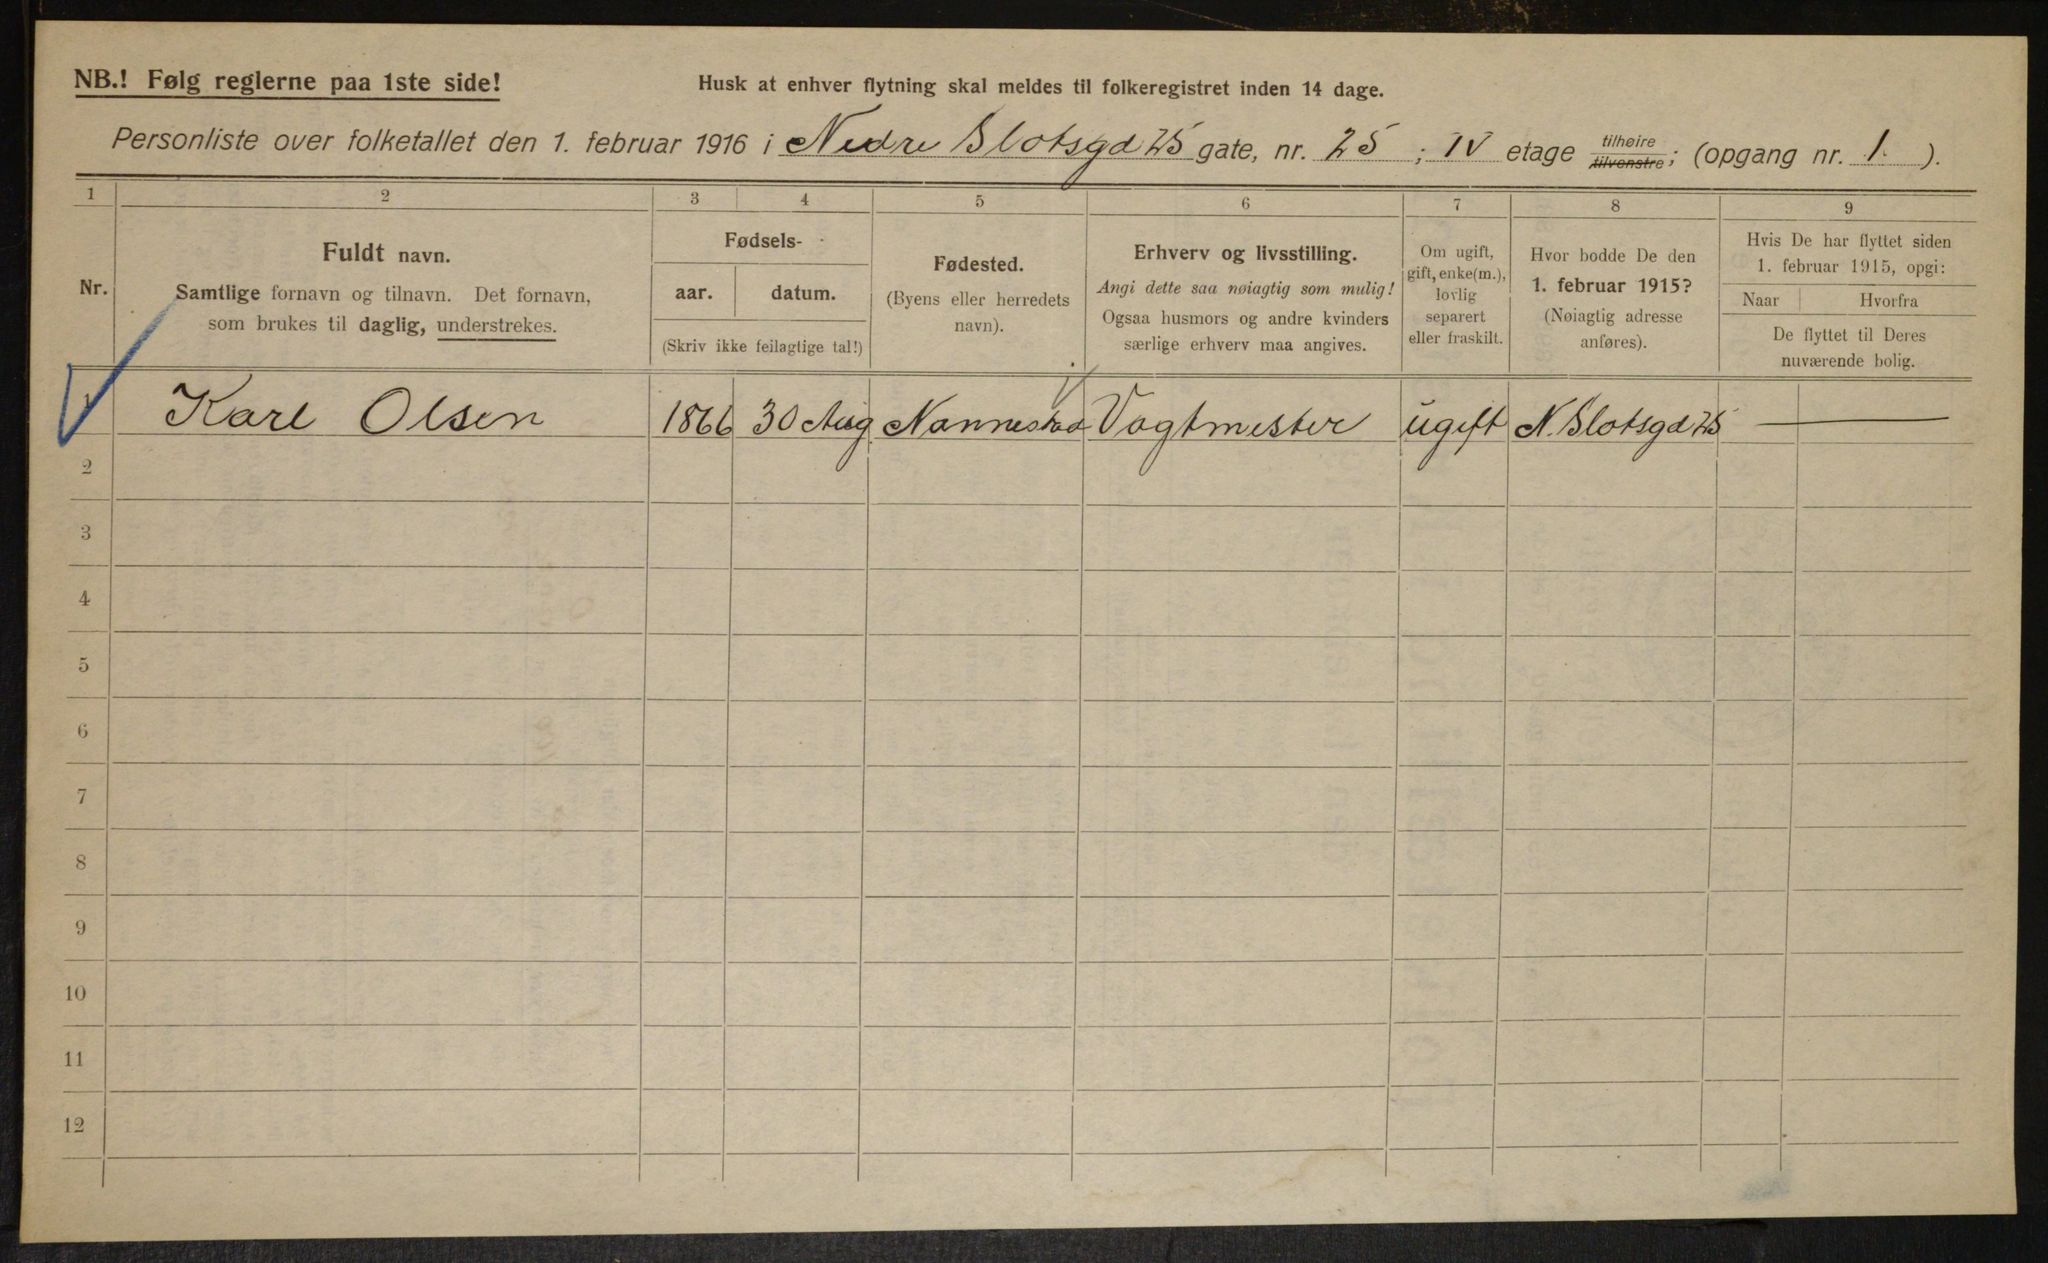 NB.! Følg reglerne paa 1ste side!
Husk at enhver flytning skal meldes til folkeregistret inden 14 dage.
Personliste over folketallet den 1. februar 1916 i Nedre Slotsgd 25 gate, nr. 25 ; IV etage tilhøire tilvenstre; (opgang nr. 1. ).
1 2 3 4 5 6 7 8 9
Nr.
Fuldt navn.
Samtlige fornavn og tilnavn. Det fornavn,
som brukes til daglig, understrekes.
Fødsels-
aar. datum.
(Skriv ikke feilagtige tal!)
Fødested.
(Byens eller herredets
navn).
Erhverv og livsstilling.
Angi dette saa nøiagtig som mulig!
Ogsaa husmors og andre kvinders
særlige erhverv maa angives.
Om ugift,
gift, enke(m.),
lovlig
separert
eller fraskilt.
Hvor bodde De den
1. februar 1915?
(Nøiagtig adresse
anføres).
Hvis De har flyttet siden
1. februar 1915, opgi:
Naar Hvorfra
De flyttet til Deres
nuværende bolig.
1 Karl Olsen 1866 30 Aug Nannestad Vagtmester ugift N. Slotsgd 25 —
2
3
4
5
6
7
8
9
10
11
12